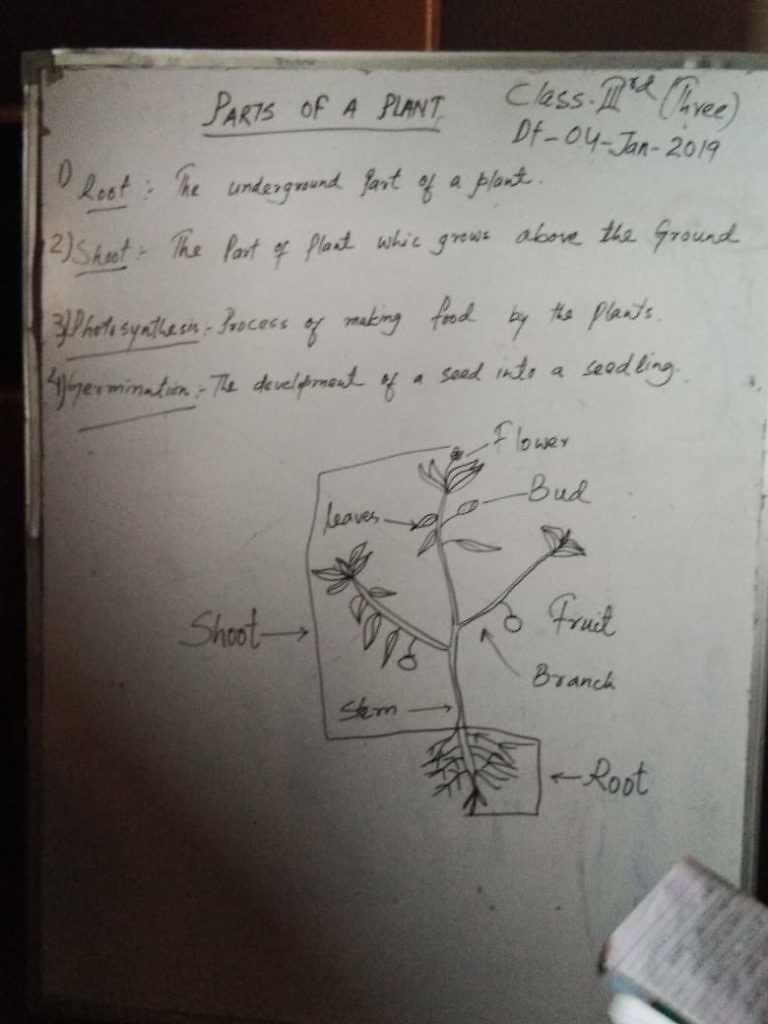 PARTS OF A PLANT
Class. IIIrd (Three)
Dt-04-Jan-2019
1) Root :- The underground Part of a plant.
2) Shoot :- The Part of Plant whic grows above the Ground
3) Photosynthesis :- Process of making food by the Plants.
4) Germination :- The development of a seed into a seedling.
Flower
Bud
leaves
Shoot
Fruit
Branch
Stem
Root